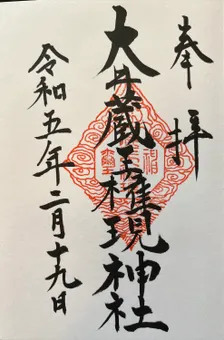 奉拝
大井蔵王権現神社
令和五年二月十九日